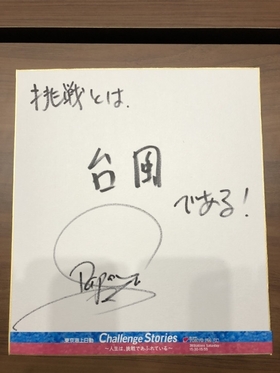 挑戦とは、
台風
である!
東京海上日動 Challenge Stories
〜人生は、挑戦であふれている〜